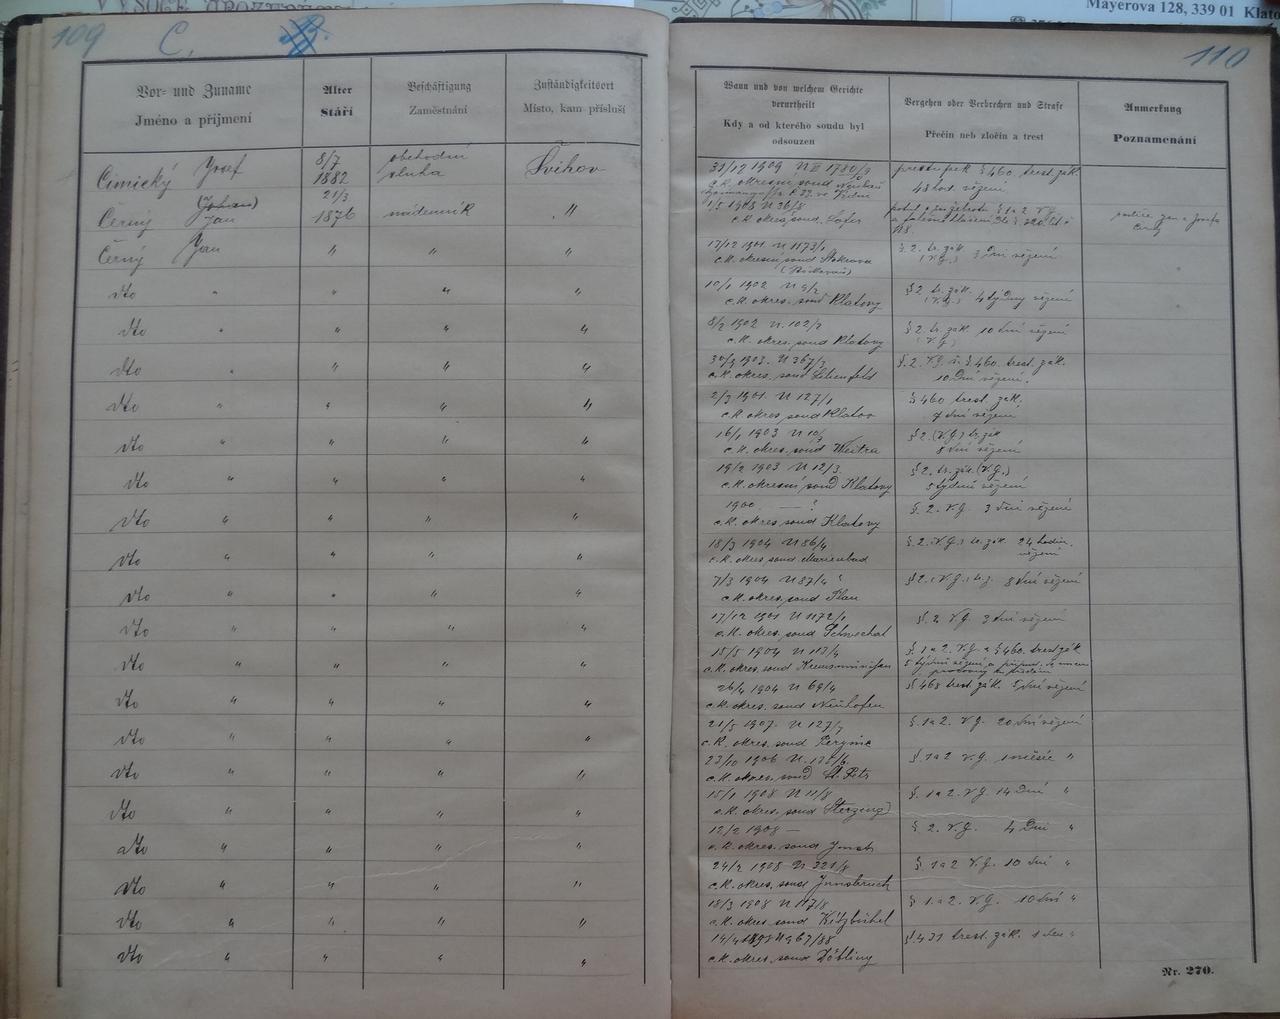 Mayerova 128, 339 01 Klato
109 C.
110
Vor- und Zuname
Jméno a příjmení
Alter
Stáří
Beschäftigung
Zaměstnání
Zuständigkeitsort
Místo, kam přísluší
Wann und von welchem Gerichte
verurtheilt
Kdy a od kterého soudu byl
odsouzen
Vergehen oder Verbrechen und Strafe
Přečin neb zločin a trest
Anmerkung
Poznamenání
Cimický Josef 8/7 1882 obchodní sluha Švihov
31/12 1909 přestupek § 460. trest. zák.
c.k. okresní soud 48 hod. vězení
Černý (Johan) Jan 21/3 1876 nádenník "
1/5 1908 U 36/8
c.k. okres. soud. Lofer
Černý Jan " " "
17/12 1901. U 1173/1 § 2. tr. zák. (V.G.) 3 dni vězení
c.k. okresní soud
dto " " " "
10/1 1902 U 9/2 § 2 tr. zák. (V.G.) 4 týdny vězení
c.k. okres. soud Klatovy
dto " " " "
8/2 1902 U. 102/2 § 2. tr. zák. 10 dní vězení (V.G.)
c.k. okres. soud Klatovy
dto " " " "
U 367/3 § 2. V.G. § 460. trest. zák.
c.k. okres. soud Lilienfeld 10 dní vězení.
dto " " " "
2/3 1901. U 127/1 § 460 trest. zák.
c.k. okres. soud Klatov dní vězení
dto " " " "
16/1 1903 § 2. (V.G.) tr. zák
c.k. okres. soud Weitra 8 dní vězení
dto " " " "
19/2 1903 U 12/3. § 2. tr. zák. (V.G.)
c.k. okresní soud Klatovy 5 týdnů vězení
dto " " " "
1900. — § 2. V.G. 3 dni vězení
c.k. okres. soud Klatovy
dto " " " "
18/3 1904 U 86/4 § 2. (V.G.) tr. zák. 24 hodin. vězení
c.k. okres. soud Marienbad
dto " " " "
7/3 1904 U 87/4 § 2. (V.G.) tr. z. 8 dní vězení
c.k. okres. soud Plan
dto " " " "
17/12 1901 U 1172/1 § 2 V.G. 3 dni vězení
c.k. okres. soud Schwechat
dto " " " "
18/5 1904 U 113/4 § 1 a 2. V.G. a § 460. trest zák
c.k. okres. soud Kremsmünster 5 týdnů vězení a
dto " " " "
26/4 1904 U 69/4 § 468 trest. zák. dní vězení
c.k. okres. soud Neuhofen
dto " " " "
21/5 1907. U 127/7 § 1 a 2. V.G. 20 dní vězení
c.k. okres. soud Pergine
dto " " " "
23/10 1906 § 1 a 2 V.G. 1 měsíc "
c.k. okres. soud St. Petr
dto " " " "
15/1 1908 U 11/8 § 1 a 2. V.G. 14 dní "
c.k. okres. soud Sterzing
dto " " " "
12/2 1908 — § 2. V.G. 4 dni "
c.k. okres. soud Imst
dto " " " "
24/2 1908 U 321/8 § 1 a 2 V.G. 10 dní "
c.k. okres. soud Innsbruck
dto " " " "
18/3 1908 U 117/8 § 1 a 2. V.G. 10 dní "
c.k. okres. soud Kitzbühel
dto " " " "
§ 431 trest. zák. 1 den "
c.k. okres. soud Döbling
Nr. 270.